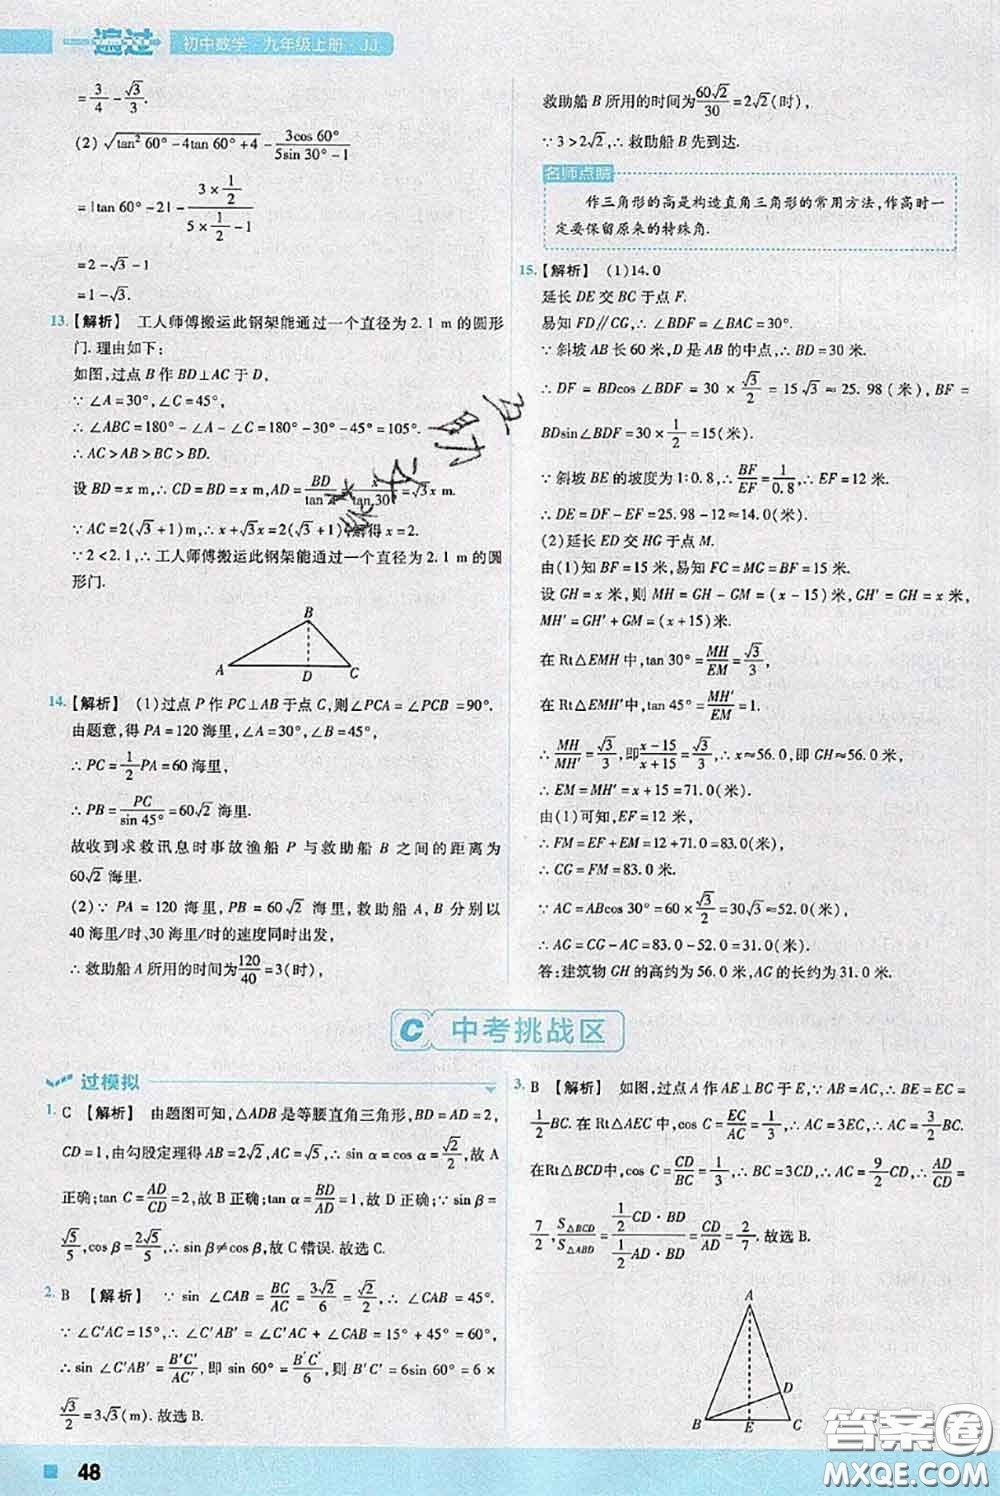 一遍过 初中数学·九年级上册·JJ
=3/4-√3/3.
(2) √(tan²60°-4tan60°+4) - 3cos60°/(5sin30°-1)
=|tan60°-2|-(3×1/2)/(5×1/2-1)
=2-√3-1
=1-√3.
13.【解析】 工人师傅搬运此钢架能通过一个直径为2.1 m的圆形
门.理由如下:
如图,过点B作BD⊥AC于D,
∵∠A=30°,∠C=45°,
∴∠ABC=180°-∠A-∠C=180°-30°-45°=105°.
∴AC>AB>BC>BD.
设BD=x m,∴CD=BD=x m,AD=BD/tan x/tan30°=√3x m.
∵AC=2(√3+1)m,∴x+√3x=2(√3+1),解得x=2.
∵2<2.1,∴工人师傅搬运此钢架能通过一个直径为2.1 m的圆
形门.
B
A D C
14.【解析】 (1)过点P作PC⊥AB于点C,则∠PCA=∠PCB=90°.
由题意,得PA=120海里,∠A=30°,∠B=45°,
∴PC=1/2PA=60海里,
∴PB=PC/sin45°=60√2海里.
故收到求救讯息时事故渔船P与救助船B之间的距离为
60√2海里.
(2)∵PA=120海里,PB=60√2海里,救助船A,B分别以
40海里/时、30海里/时的速度同时出发,
∴救助船A所用的时间为120/40=3(时),
救助船B所用的时间为60√2/30=2√2(时),
∵3>2√2,∴救助船B先到达.
名师点睛
作三角形的高是构造直角三角形的常用方法,作高时一
定要保留原来的特殊角.
15.【解析】 (1)14.0
延长DE交BC于点F.
易知FD∥CG,∴∠BDF=∠BAC=30°.
∵斜坡AB长60米,D是AB的中点,∴BD=30米.
∴DF=BDcos∠BDF=30×√3/2=15√3≈25.98(米),BF=
BDsin∠BDF=30×1/2=15(米).
∵斜坡BE的坡度为1:0.8,∴BF/EF=1/0.8,∴EF=12米.
∴DE=DF-EF=25.98-12≈14.0(米).
(2)延长ED交HG于点M.
由(1)知BF=15米,易知FC=MG=BF=15米.
设GH=x米,则MH=GH-GM=(x-15)米,GH'=GH=x米,
MH'=GH'+GM=(x+15)米.
在Rt△EMH中,tan30°=MH/EM=√3/3,
在Rt△EMH'中,tan45°=MH'/EM=1.
∴MH/MH'=√3/3,即(x-15)/(x+15)=√3/3,∴x≈56.0,即GH≈56.0米.
∴EM=MH'=x+15≈71.0(米).
由(1)可知,EF=12米,
∴FM=EF+EM=12+71.0≈83.0(米).
∴CG=FM=83.0米.
∵AC=ABcos30°=60×√3/2=30√3≈52.0(米),
∴AG=CG-AC=83.0-52.0≈31.0(米).
答:建筑物GH的高约为56.0米,AG的长约为31.0米.
C 中考挑战区
过模拟
1. C 【解析】 由题图可知,△ADB是等腰直角三角形,BD=AD=2,
CD=1,由勾股定理得AB=2√2,AC=√5,∴sinα=cosα=√2/2,故A
正确;tanC=AD/CD=2,故B正确;tanα=BD/AD=1,故D正确;∵sinβ=
√5/5,cosβ=2√5/5,∴sinβ≠cosβ,故C错误.故选C.
2. B 【解析】 ∵sin∠CAB=BC/AC=3√2/6=√2/2,∴∠CAB=45°.
∵∠C'AC=15°,∴∠C'AB'=∠C'AC+∠CAB=15°+45°=60°.
∴sin∠C'AB'=B'C'/AC',即sin60°=B'C'/6,则B'C'=6sin60°=6×
√3/2=3√3(m).故选B.
3. B 【解析】 如图,过点A作AE⊥BC于E,∵AB=AC,∴BE=EC=
1/2BC.在Rt△AEC中,cosC=EC/AC=1/3,∴AC=3EC,∴AC=3/2BC.
在Rt△BCD中,cosC=CD/BC=1/3,∴BC=3CD,∴AC=9/2CD,∴AD/CD=
7/2,S△BCD/S△ABD=(1/2CD·BD)/(1/2AD·BD)=CD/AD=2/7.故选B.
A
D
B E C
48
答案圈
MXQE.COM